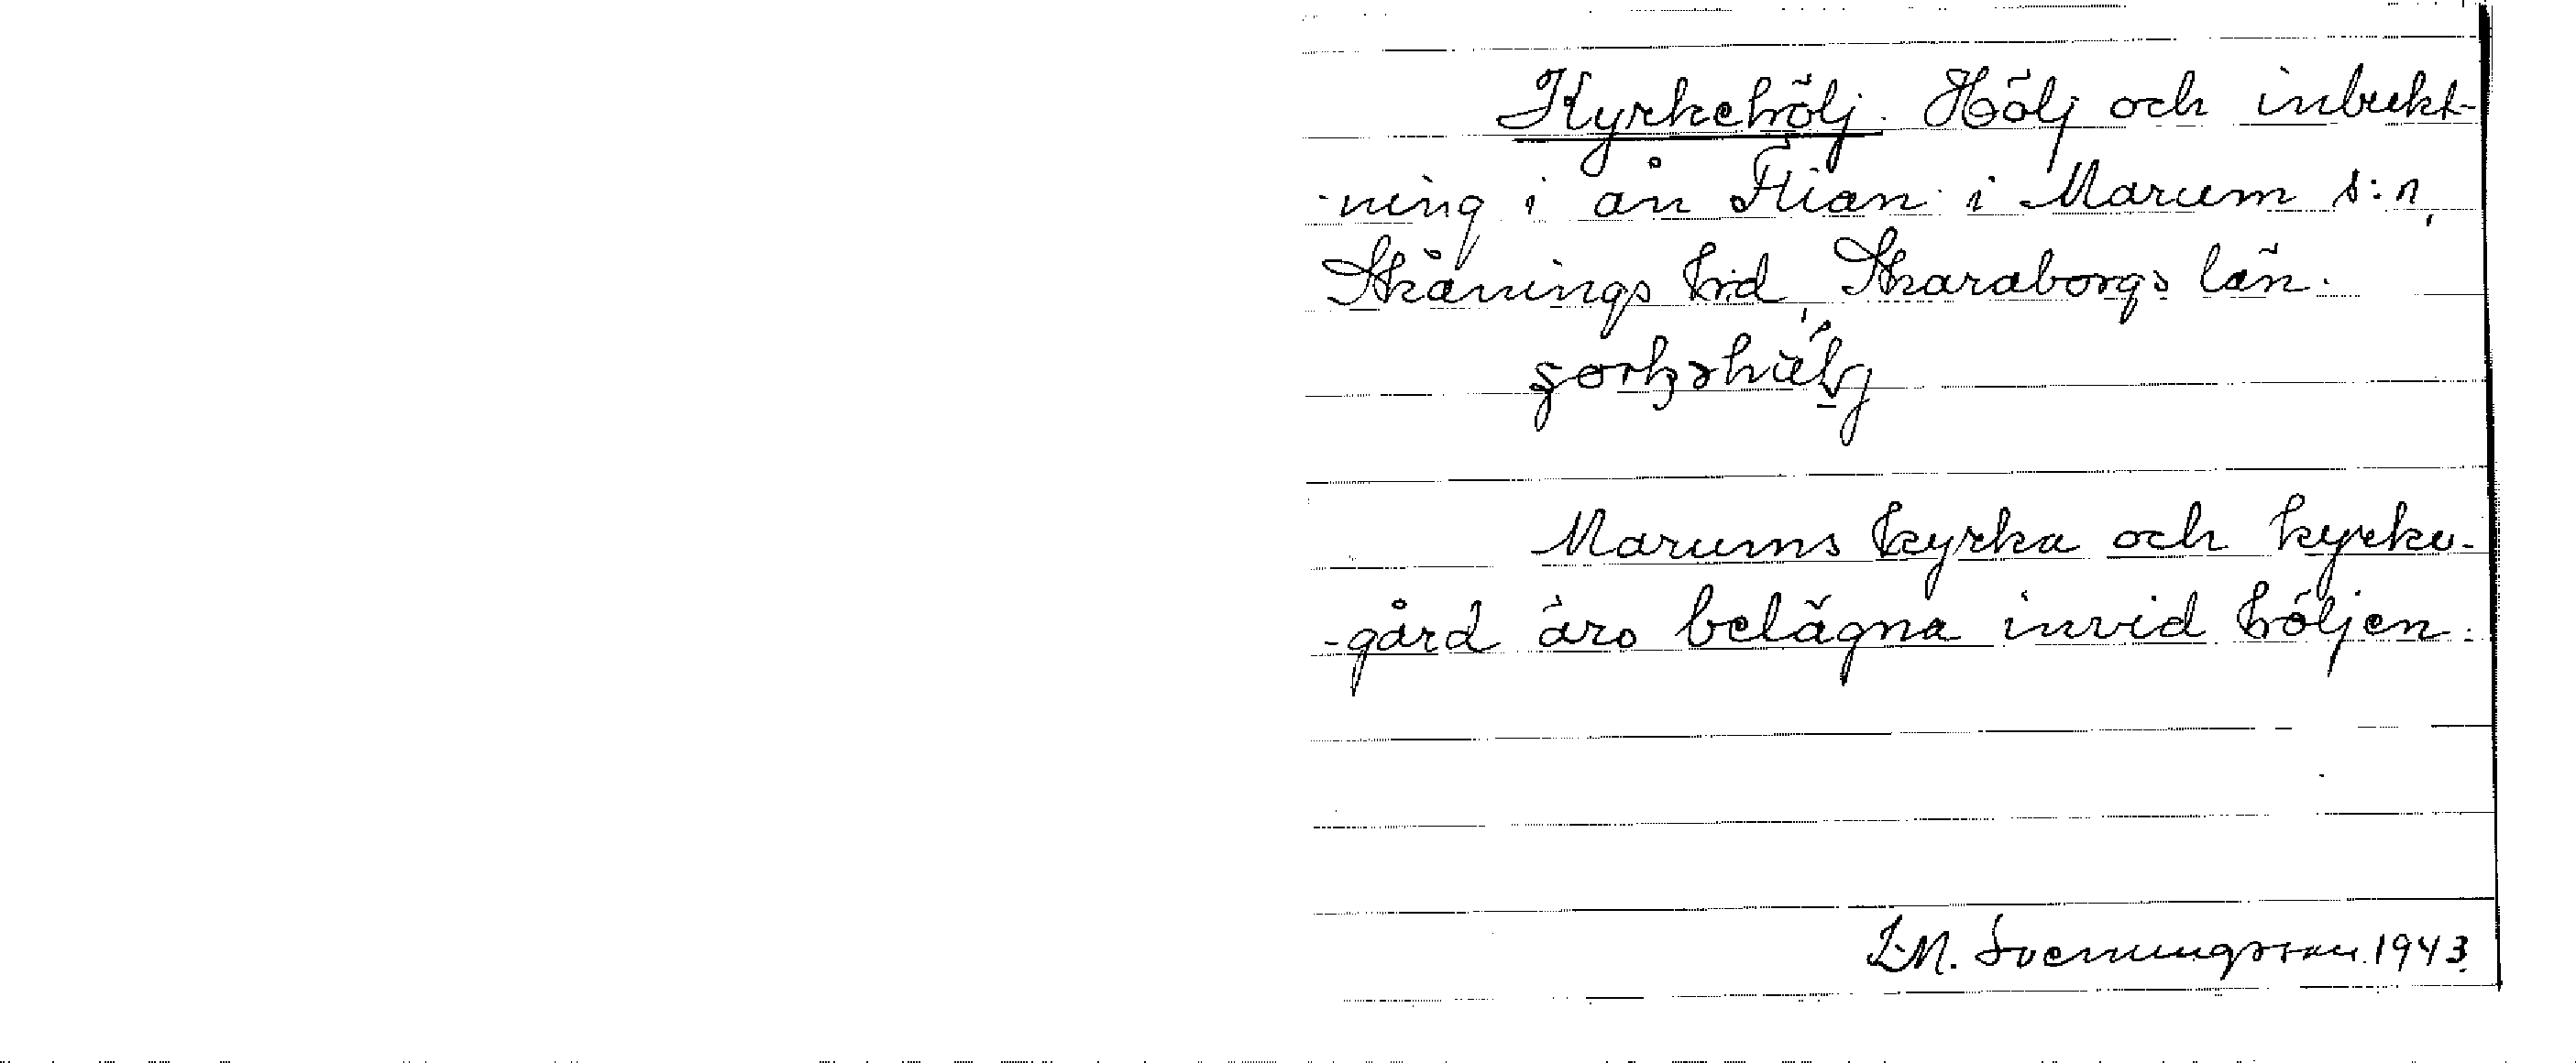 Kyrkehölj. Hölj och inbukt-
-ning i ån Flian i Marum s:n,
Skånings hd, Skaraborgs län.
Marums kyrka och kyrko-
-gård äro belägna invid höljen.
L.M. Svenungsson 1943.